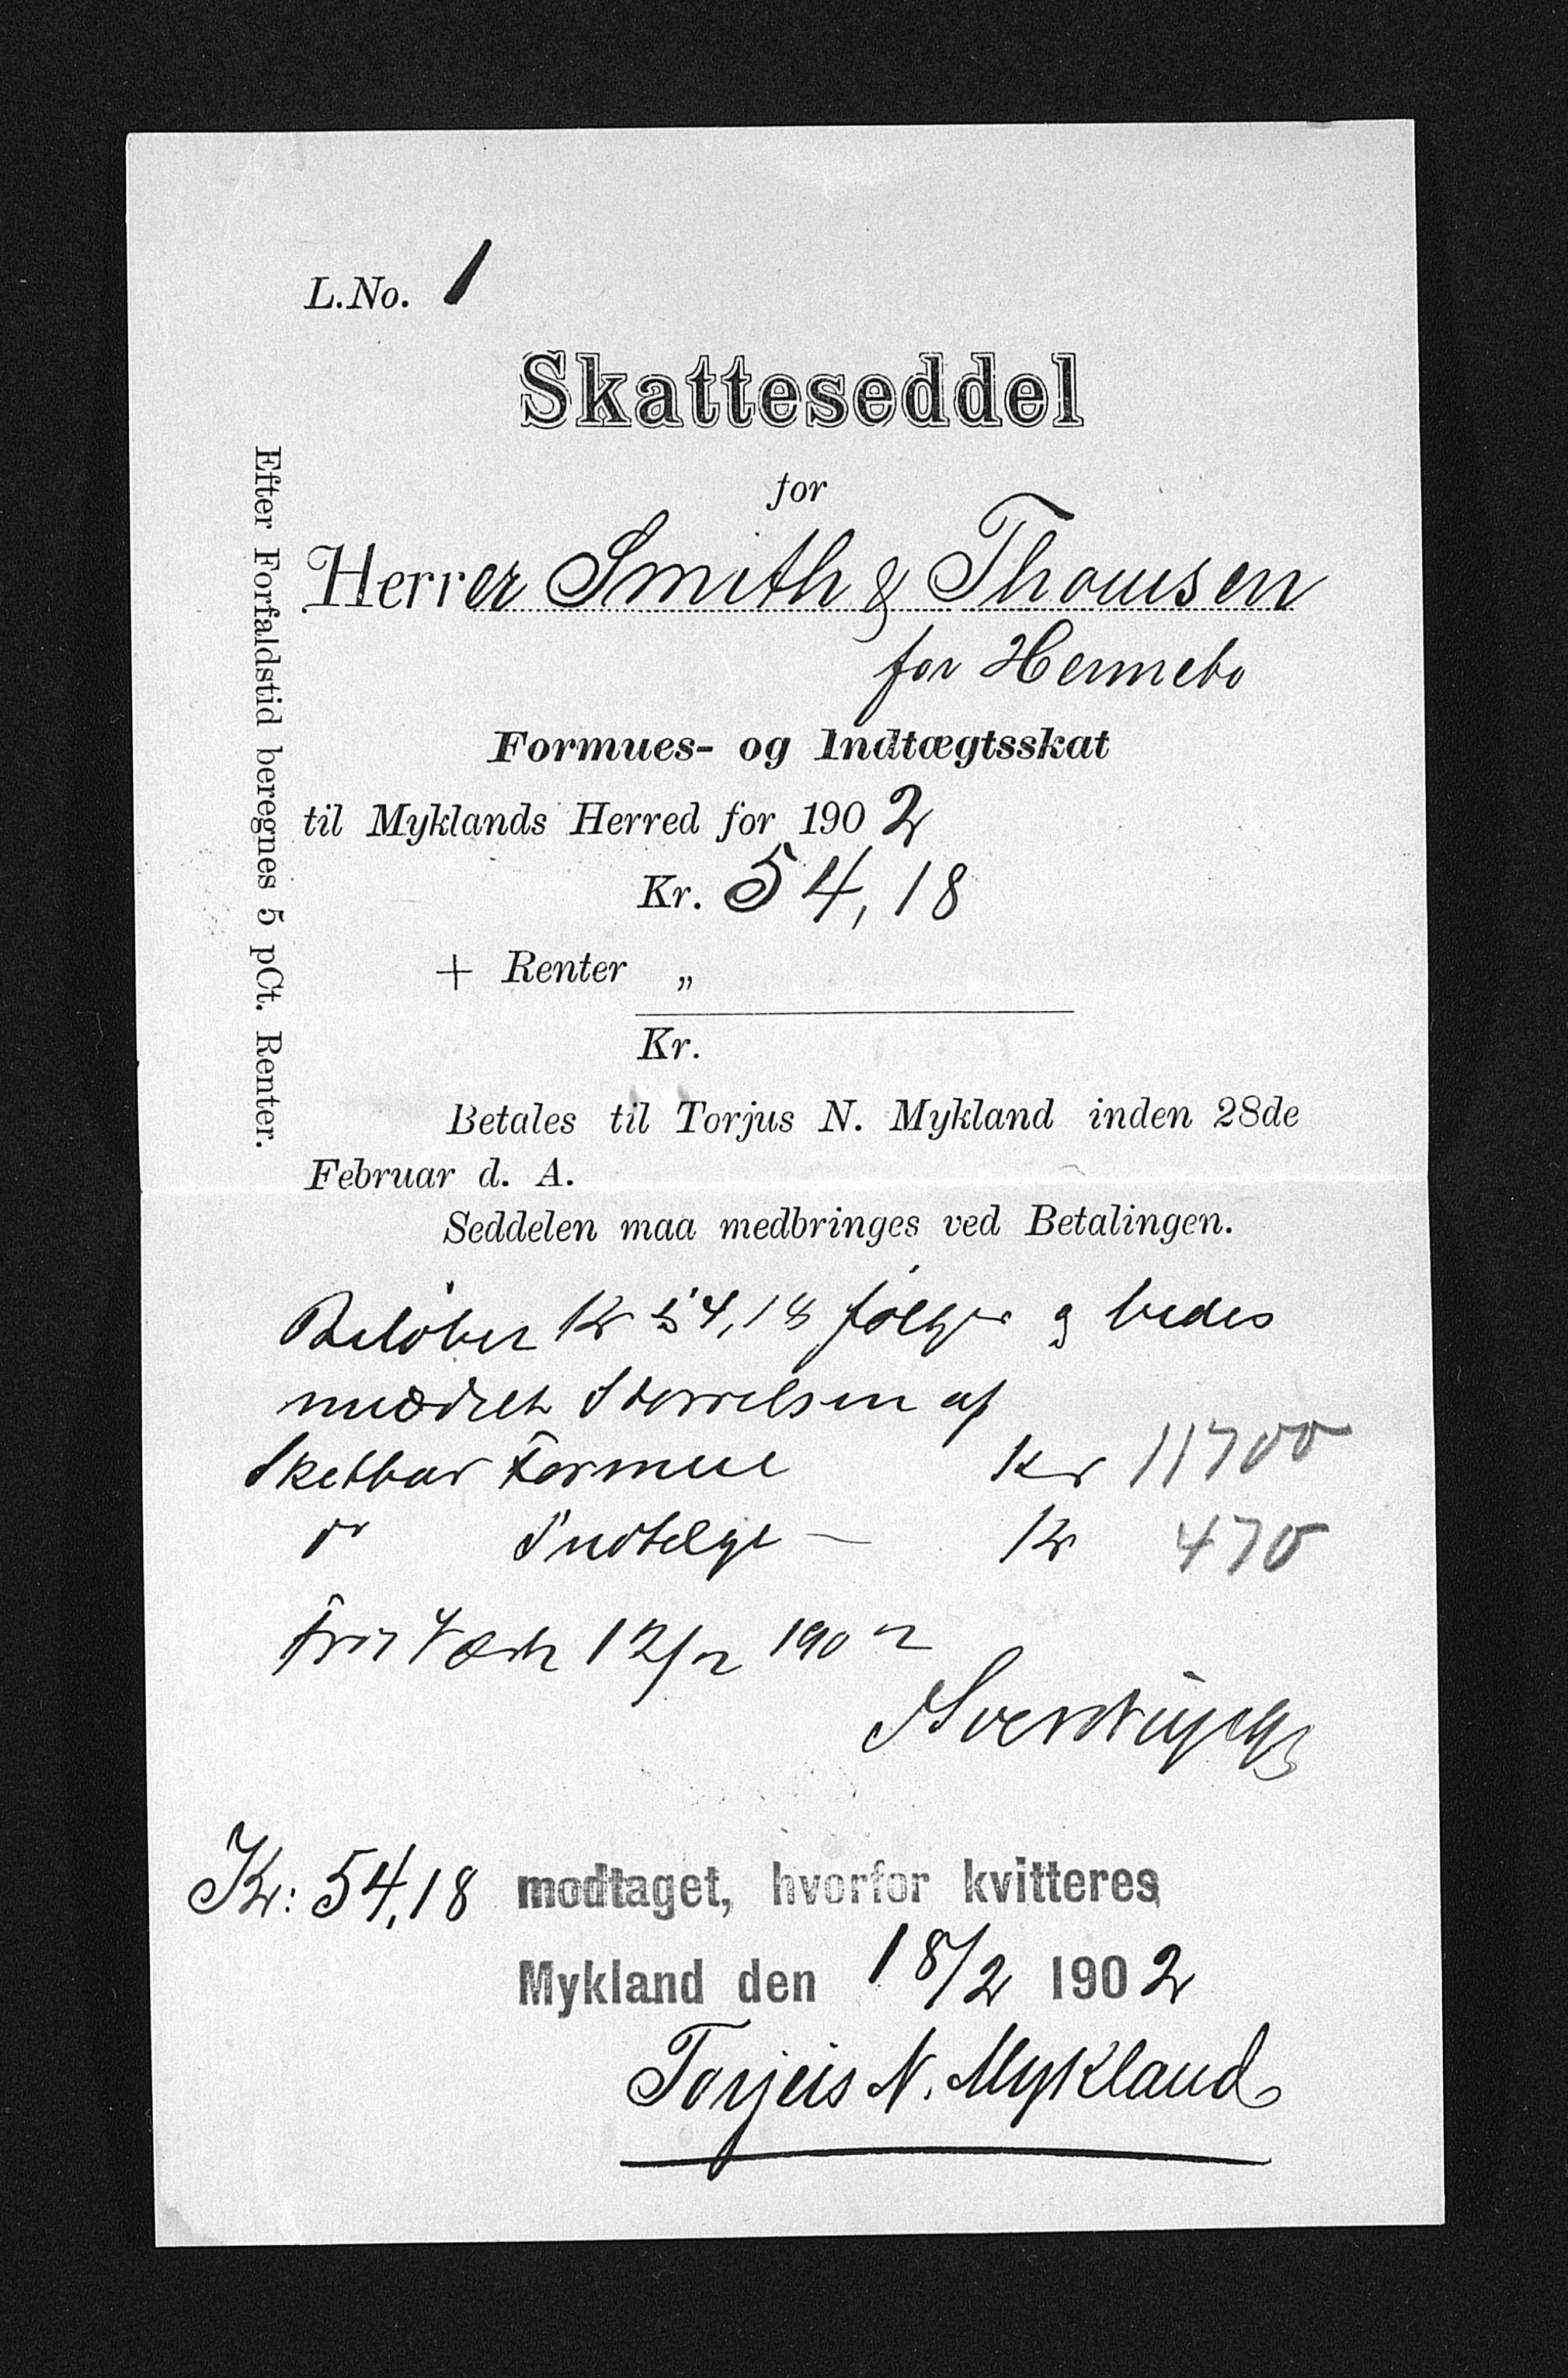 L.No. 1
Skatteseddel
for
Herrer Smith & Thomsen
for Hermebo
Formues- og Indtægtsskat
til Myklands Herred for 1902
Kr. 54,18
+ Renter „
Kr.
Betales til Torjus N. Mykland inden 28de
Februar d. A.
Seddelen maa medbringes ved Betalingen.
Efter Forfaldstid beregnes 5 pCt. Renter.
Beløbet Kr 54,18 følger og bedes
meddelt Størrelsen af
Skatbar Formue Kr 11700
do Indtægt — Kr 470
12/2 1902
Kr: 54,18 modtaget, hvorfor kvitteres
Mykland den 18/2 1902
Torjus N. Mykland